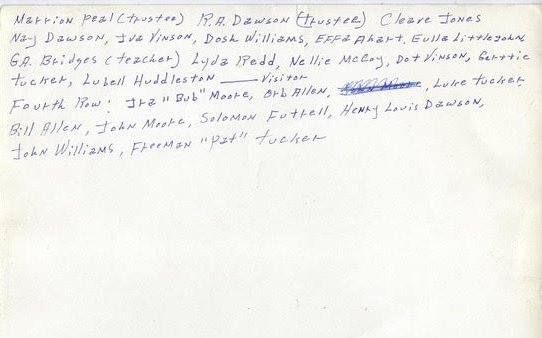 Marrion Peal (trustee) R.A. Dawson (trustee) Cleave Jones
Nay Dawson, Iva Vinson, Dosh Williams, Effa Ahart, Eulla Littlejohn,
G.A. Bridges (teacher) Lyda Redd, Nellie McCoy, Dot Vinson, Gerttie
Tucker, Lubell Huddleston —— Visitor
Fourth Row: Ira "Bub" Moore, Orb Allen, , Luke Tucker,
Bill Allen, John Moore, Solomon Futrell, Henry Louis Dawson,
John Williams, Freeman "Pat" Tucker